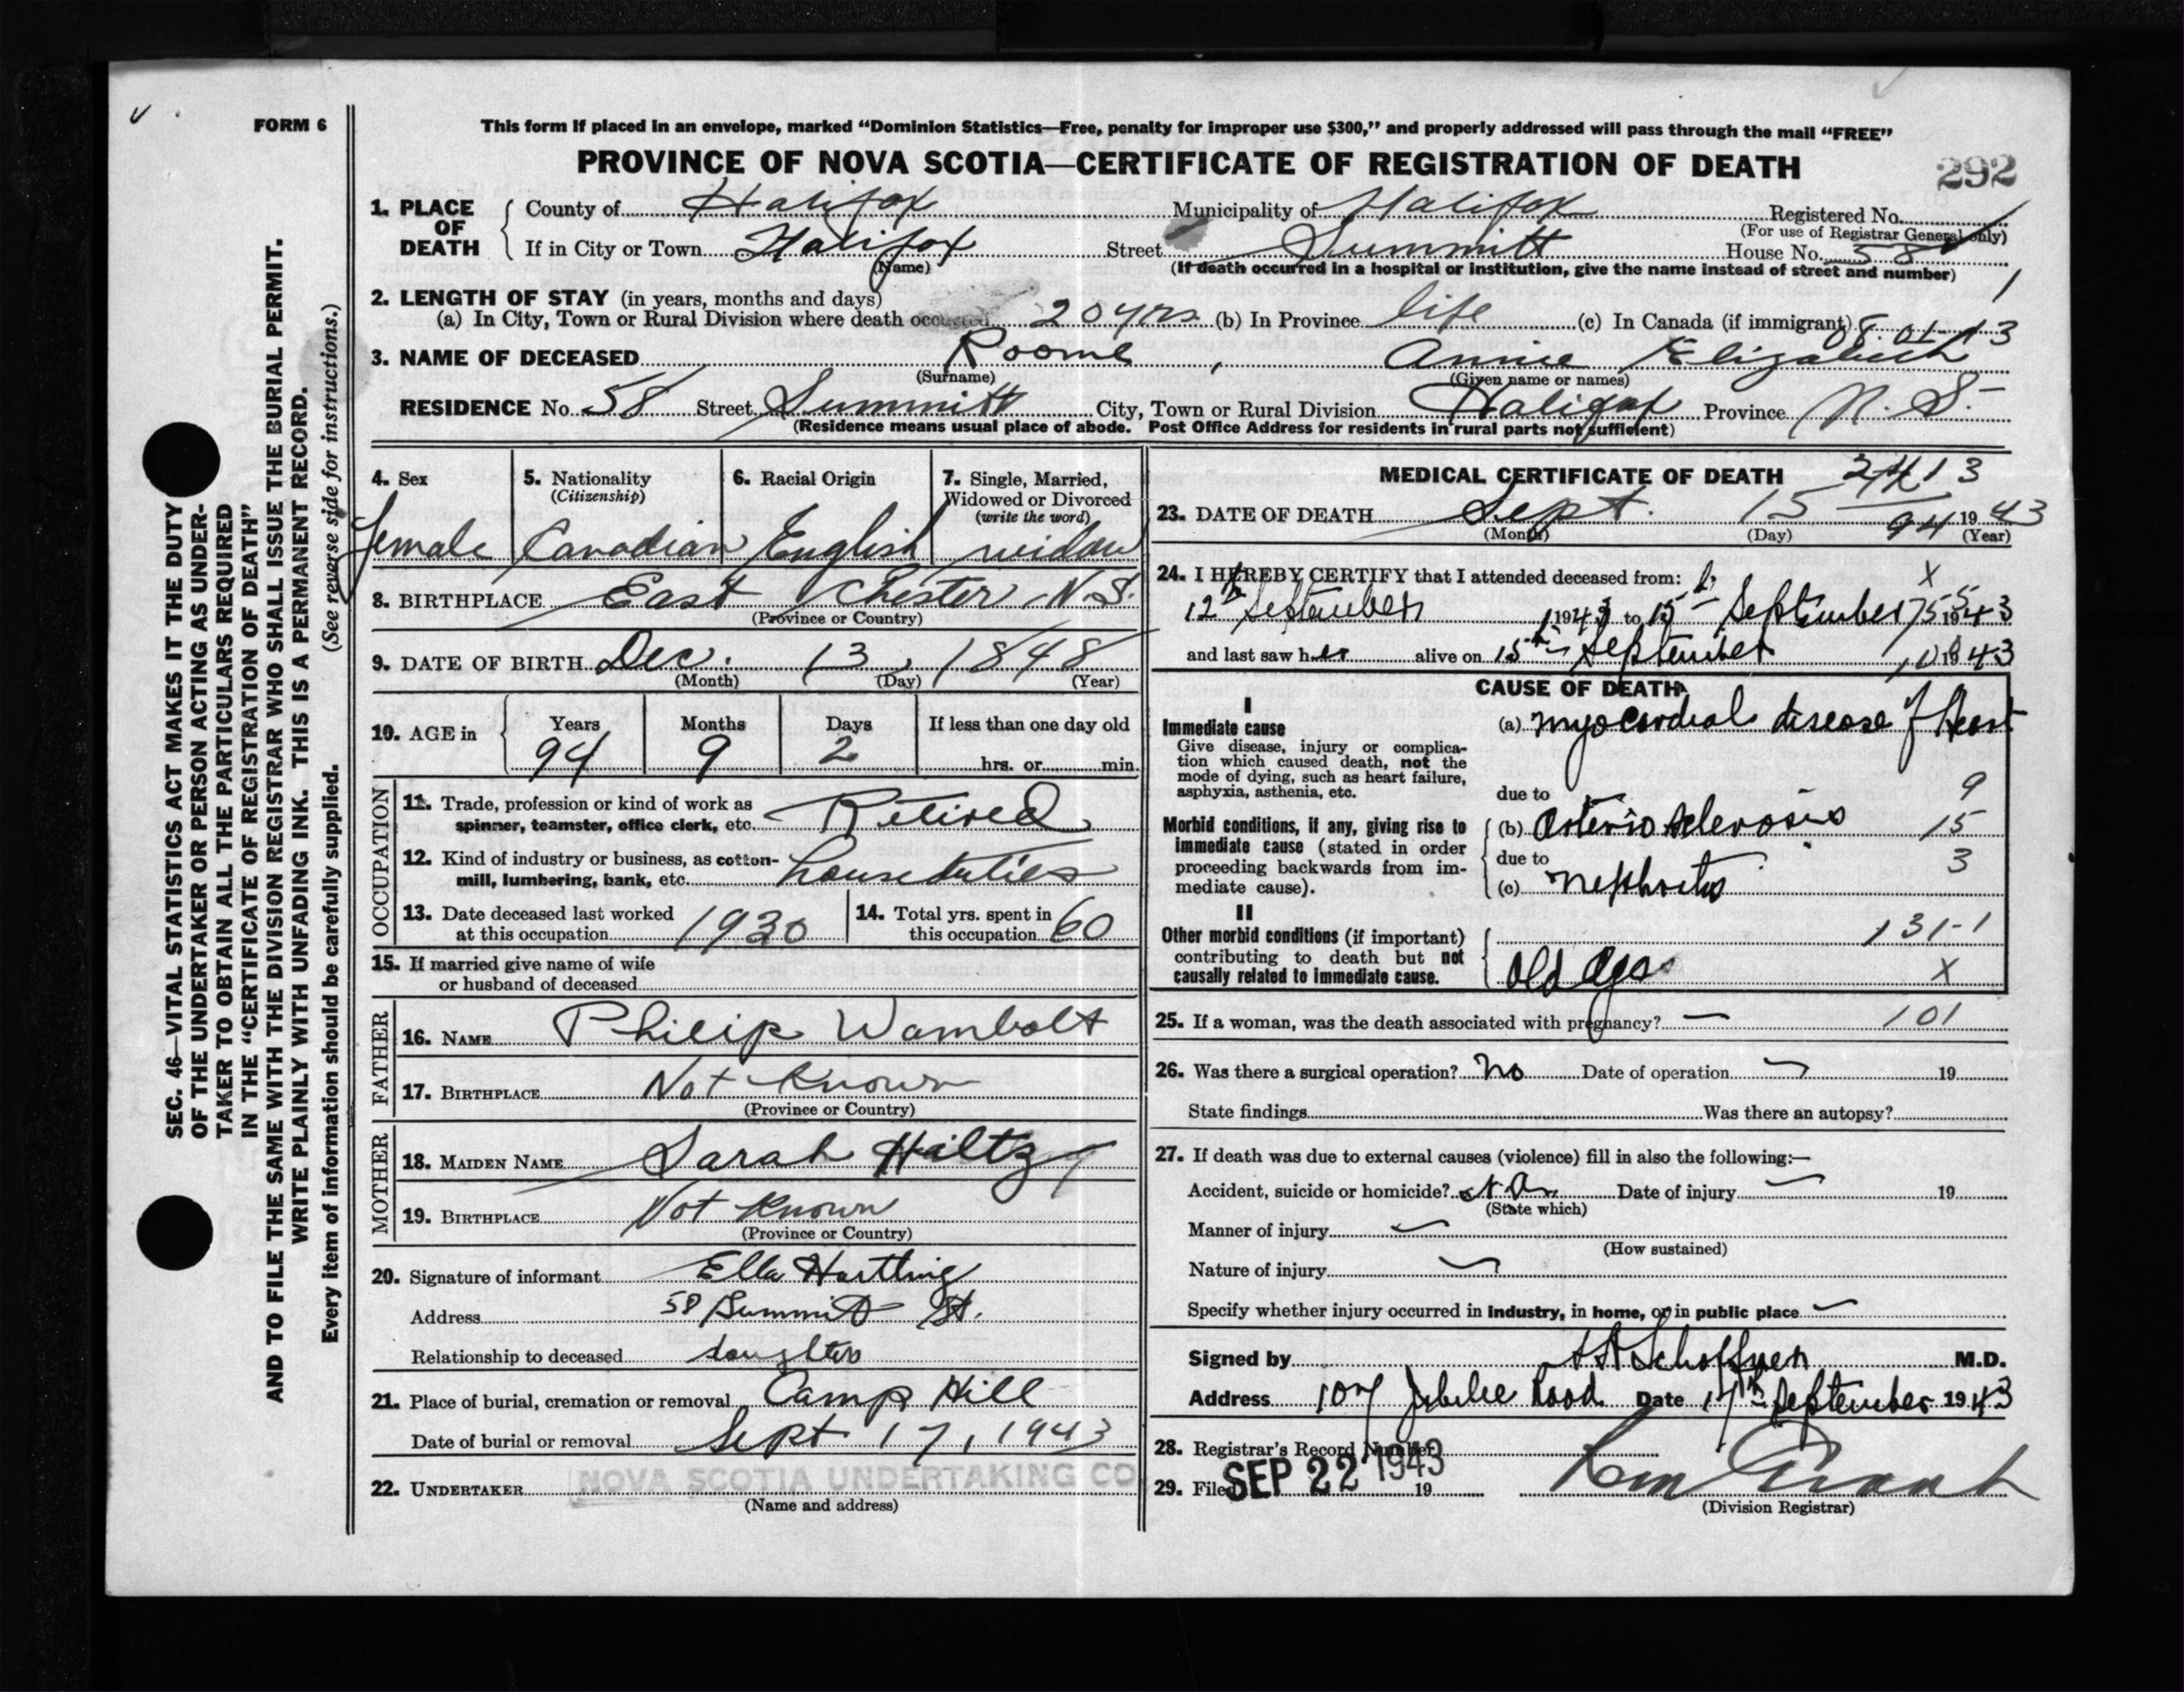 FORM 6
This form if placed in an envelope, marked "Dominion Statistics—Free, penalty for improper use $300," and properly addressed will pass through the mail "FREE"
PROVINCE OF NOVA SCOTIA—CERTIFICATE OF REGISTRATION OF DEATH
292
SEC. 46—VITAL STATISTICS ACT MAKES IT THE DUTY
OF THE UNDERTAKER OR PERSON ACTING AS UNDER-
TAKER TO OBTAIN ALL THE PARTICULARS REQUIRED
IN THE "CERTIFICATE OF REGISTRATION OF DEATH"
AND TO FILE THE SAME WITH THE DIVISION REGISTRAR WHO SHALL ISSUE THE BURIAL PERMIT.
WRITE PLAINLY WITH UNFADING INK. THIS IS A PERMANENT RECORD.
Every item of information should be carefully supplied. (See reverse side for instructions.)
1. PLACE OF DEATH
County of Halifax Municipality of Halifax Registered No.
(For use of Registrar General only)
If in City or Town Halifax Street Summitt House No. 58
(Name)
(If death occurred in a hospital or institution, give the name instead of street and number)
1
2. LENGTH OF STAY (in years, months and days)
(a) In City, Town or Rural Division where death occurred 20 yrs (b) In Province life (c) In Canada (if immigrant)
3. NAME OF DECEASED Roome, Annie Elizabeth
(Surname) (Given name or names)
RESIDENCE No. 58 Street Summitt City, Town or Rural Division Halifax Province N. S.
(Residence means usual place of abode. Post Office Address for residents in rural parts not sufficient)
4. Sex
female
5. Nationality
(Citizenship)
Canadian
6. Racial Origin
English
7. Single, Married,
Widowed or Divorced
(write the word)
widow
8. BIRTHPLACE East Chester N.S.
(Province or Country)
9. DATE OF BIRTH Dec. 13, 1848
(Month) (Day) (Year)
10. AGE in Years Months Days If less than one day old
94 9 2 hrs. or min.
OCCUPATION
11. Trade, profession or kind of work as
spinner, teamster, office clerk, etc. Retired
12. Kind of industry or business, as cotton-
mill, lumbering, bank, etc. house duties
13. Date deceased last worked
at this occupation 1930
14. Total yrs. spent in
this occupation 60
15. If married give name of wife
or husband of deceased
FATHER
16. NAME Philip Wambolt
17. BIRTHPLACE Not Known
(Province or Country)
MOTHER
18. MAIDEN NAME Sarah Hiltz
19. BIRTHPLACE Not Known
(Province or Country)
20. Signature of informant Ella Hartling
Address 58 Summit St.
Relationship to deceased daughter
21. Place of burial, cremation or removal Camp Hill
Date of burial or removal Sept 17, 1943
22. UNDERTAKER NOVA SCOTIA UNDERTAKING CO
(Name and address)
MEDICAL CERTIFICATE OF DEATH
23. DATE OF DEATH Sept. 15 1943
(Month) (Day) (Year)
94
24. I HEREBY CERTIFY that I attended deceased from:
X
12th September 1943 to 15th September 1943
and last saw her alive on 15th September 1943
CAUSE OF DEATH
I
Immediate cause
Give disease, injury or complica-
tion which caused death, not the
mode of dying, such as heart failure,
asphyxia, asthenia, etc.
(a) Myocardial disease of Heart
due to 9
Morbid conditions, if any, giving rise to
immediate cause (stated in order
proceeding backwards from im-
mediate cause).
(b) Arterio sclerosis 15
due to 3
(c) Nephritis
II
Other morbid conditions (if important)
contributing to death but not
causally related to immediate cause.
131-1
Old Age X
25. If a woman, was the death associated with pregnancy? — 101
26. Was there a surgical operation? No Date of operation 19
State findings Was there an autopsy?
27. If death was due to external causes (violence) fill in also the following:—
Accident, suicide or homicide? Date of injury 19
(State which)
Manner of injury
(How sustained)
Nature of injury
Specify whether injury occurred in industry, in home, or in public place
Signed by M.D.
Address 107 Jubilee Road Date 17th September 1943
28. Registrar's Record Number
29. Filed SEP 22 1943 19
(Division Registrar)